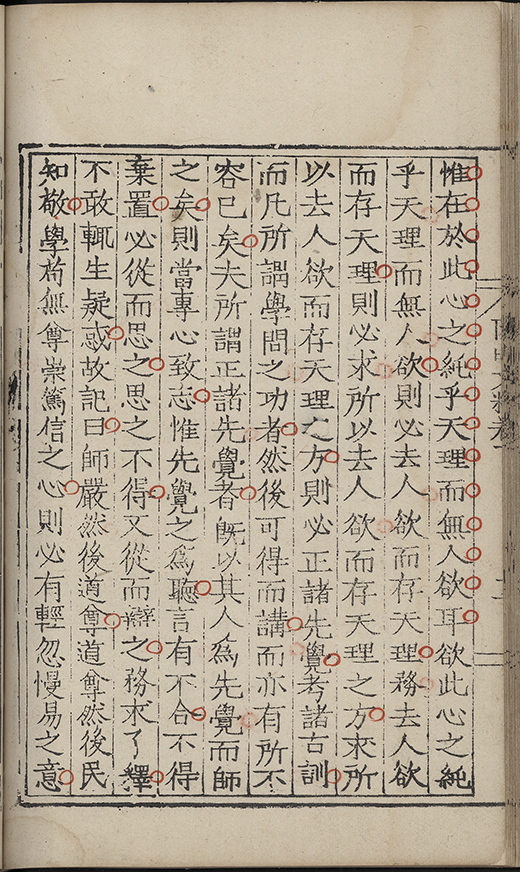 惟在於此心之純乎天理而無人欲耳欲此心之純
乎天理而無人欲則必去人欲而存天理務去人欲
而存天理則必求所以去人欲而存天理之方求所
以去人欲而存天理之方則必正諸先覺考諸古訓
而凡所謂學問之功者然後可得而講而亦有所不
容已矣夫所謂正諸先覺者旣以其人爲先覺而師
之矣則當專心致志惟先覺之爲聽言有不合不得
棄置必從而思之思之不得又從而辯之務求了釋
不敢輒生疑惑故記曰師嚴然後道尊道尊然後民
知敬學苟無尊崇篤信之心則必有輕忽慢易之意